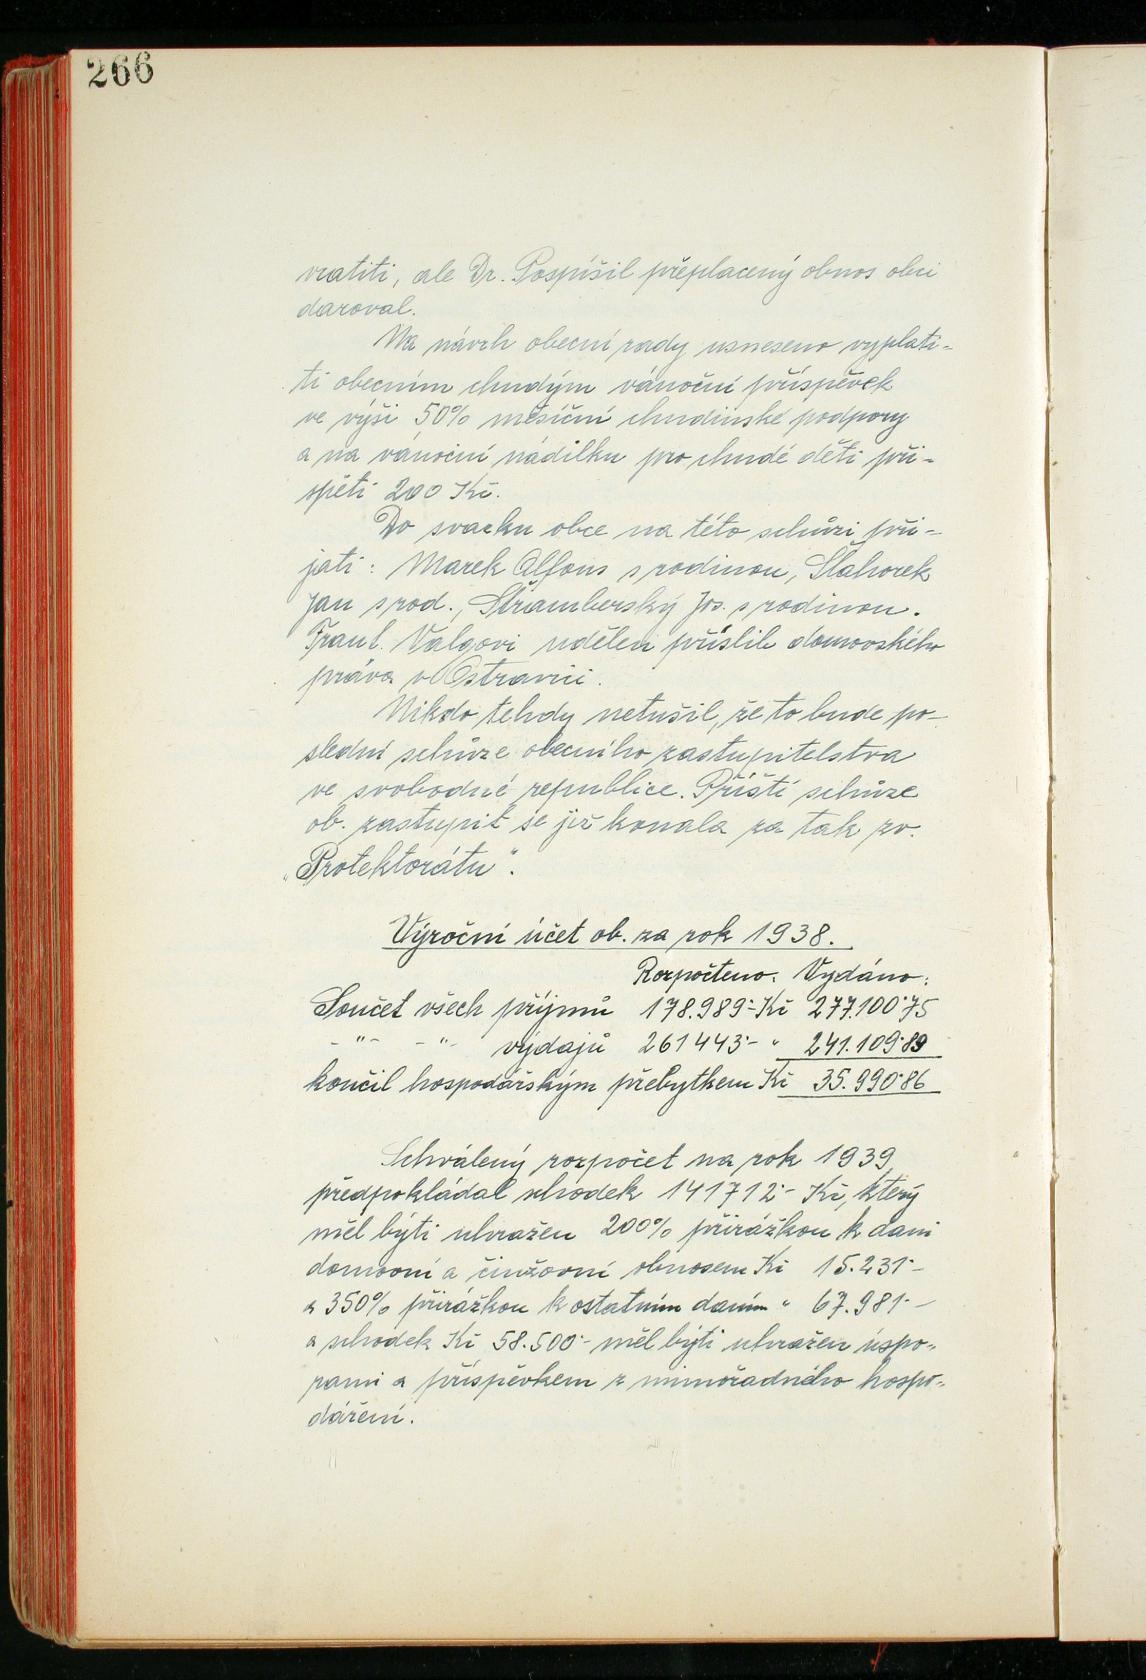 266
vratiti, ale Dr. Pospíšil přeplacený obnos obci
daroval.
Na návrh obecní rady usneseno vyplati-
ti obecním chudým vánoční příspěvek
ve výši 50% měsíční chudinské podpory
a na vánoční nádilku pro chudé děti při-
spěti 200 Kč.
Do svazku obce na této schůzi při-
jati: Marek Alfons s rodinou, Šlahorek
Jan s rod., Štramberský Jos. s rodinou.
Valgovi udělen příslib domovského
práva v Ostravici.
Nikdo tehdy netušil, že to bude po-
slední schůze obecního zastupitelstva
ve svobodné republice. Příští schůze
ob. zastupit se již konala za tak zv.
„Protektorátu".
Výroční účet ob. za rok 1938.
Rozpočteno. Vydáno:
Součet všech příjmů 178.989·- Kč 277.100·75
- "- - "- výdajů 261443·- " 241.109·89
končil hospodářským přebytkem Kč 35.990·86
Schválený rozpočet na rok 1939
předpokládal schodek 141712·- Kč, který
měl býti uhražen 200% přirážkou k dani
domovní a činžovní obnosem Kč 15.231·-
a 350% přirážkou k ostatním daním " 67.981·-
a schodek Kč 58.500·- měl býti uhražen úspo-
rami a příspěvkem z mimořádného hospo-
dáření.